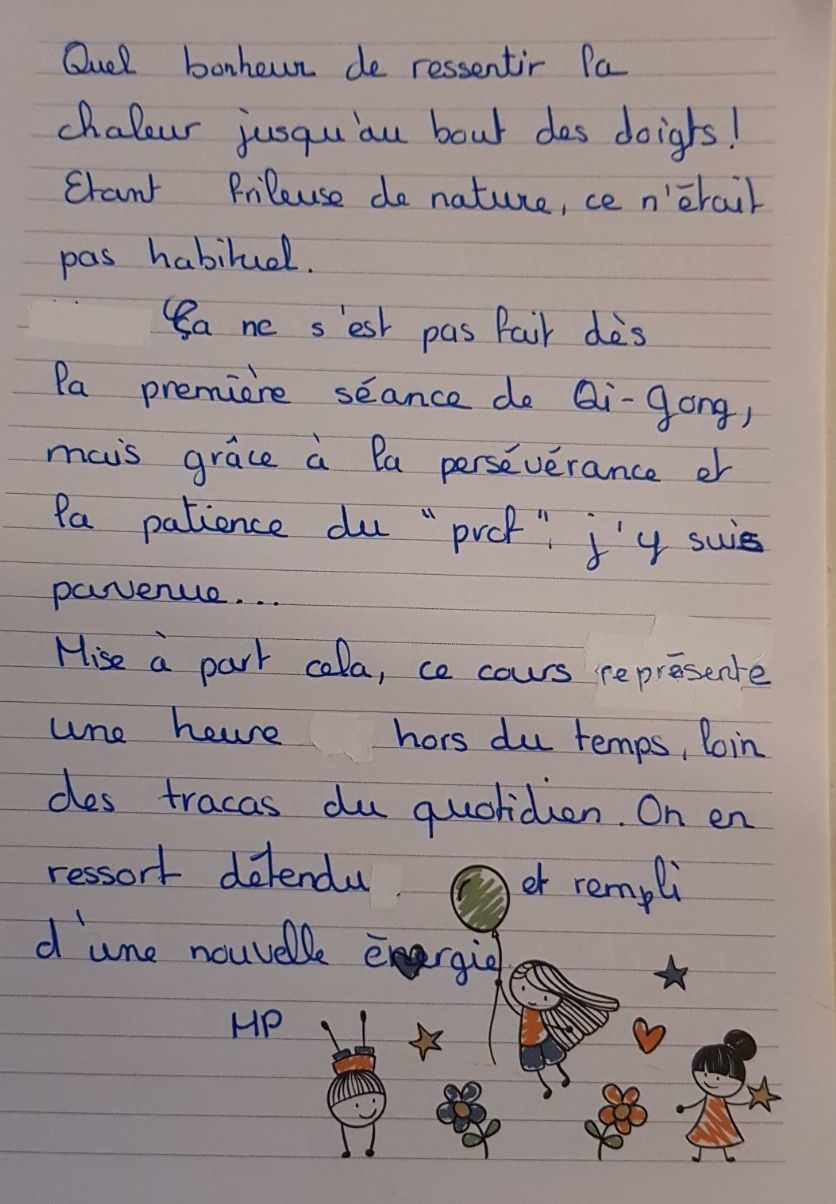 Quel bonheur de ressentir la
chaleur jusqu'au bout des doigts!
Etant frileuse de nature, ce n'était
pas habituel.
Ça ne s'est pas fait dès
la première séance de Qi-gong,
mais grâce à la persévérance et
la patience du "prof", j'y suis
parvenue...
Mise à part cela, ce cours représente
une heure hors du temps, loin
des tracas du quotidien. On en
ressort détendu et rempli
d'une nouvelle énergie
MP